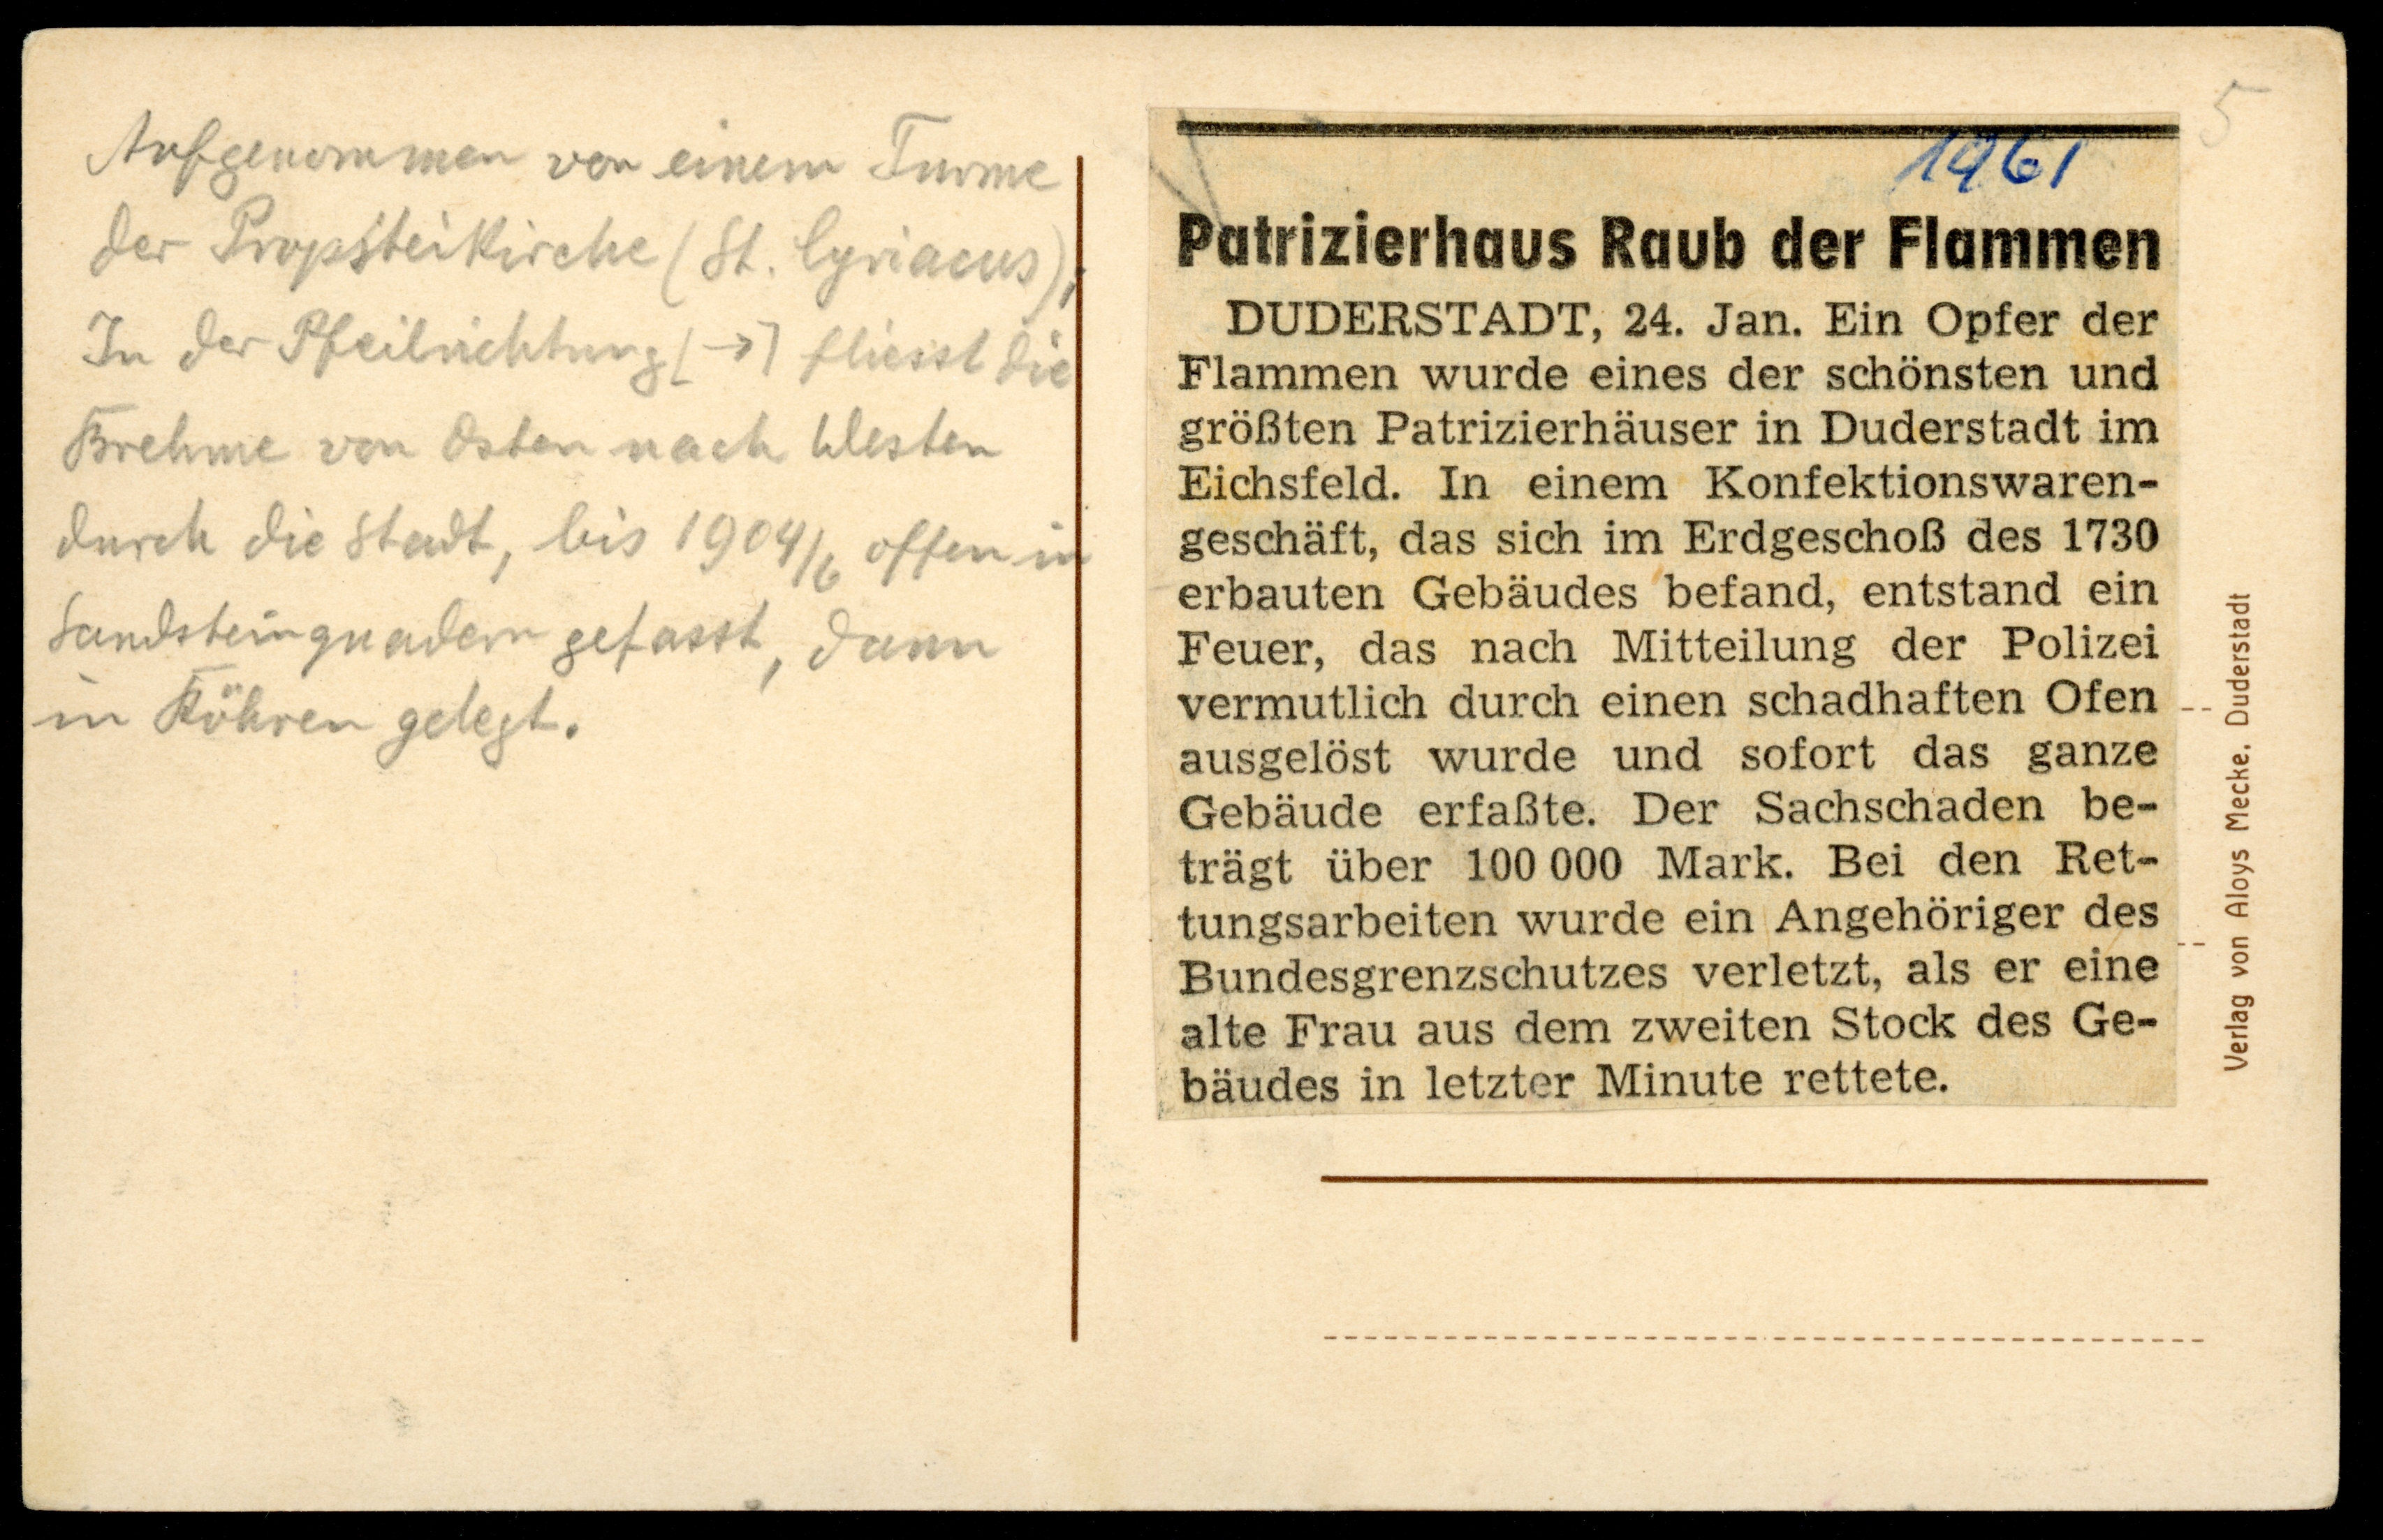 Aufgenommen von einem Turme
der Propsteikirche (St. Cyriacus);
In der Pfeilrichtung [→] fliesst die
Brehme von Osten nach Westen
durch die Stadt, bis 1904/6 offen in
Sandsteinquadern gefasst, dann
in Röhren gelegt.
5
1961
Patrizierhaus Raub der Flammen
DUDERSTADT, 24. Jan. Ein Opfer der
Flammen wurde eines der schönsten und
größten Patrizierhäuser in Duderstadt im
Eichsfeld. In einem Konfektionswaren-
geschäft, das sich im Erdgeschoß des 1730
erbauten Gebäudes befand, entstand ein
Feuer, das nach Mitteilung der Polizei
vermutlich durch einen schadhaften Ofen
ausgelöst wurde und sofort das ganze
Gebäude erfaßte. Der Sachschaden be-
trägt über 100 000 Mark. Bei den Ret-
tungsarbeiten wurde ein Angehöriger des
Bundesgrenzschutzes verletzt, als er eine
alte Frau aus dem zweiten Stock des Ge-
bäudes in letzter Minute rettete.
Verlag von Aloys Mecke. Duderstadt